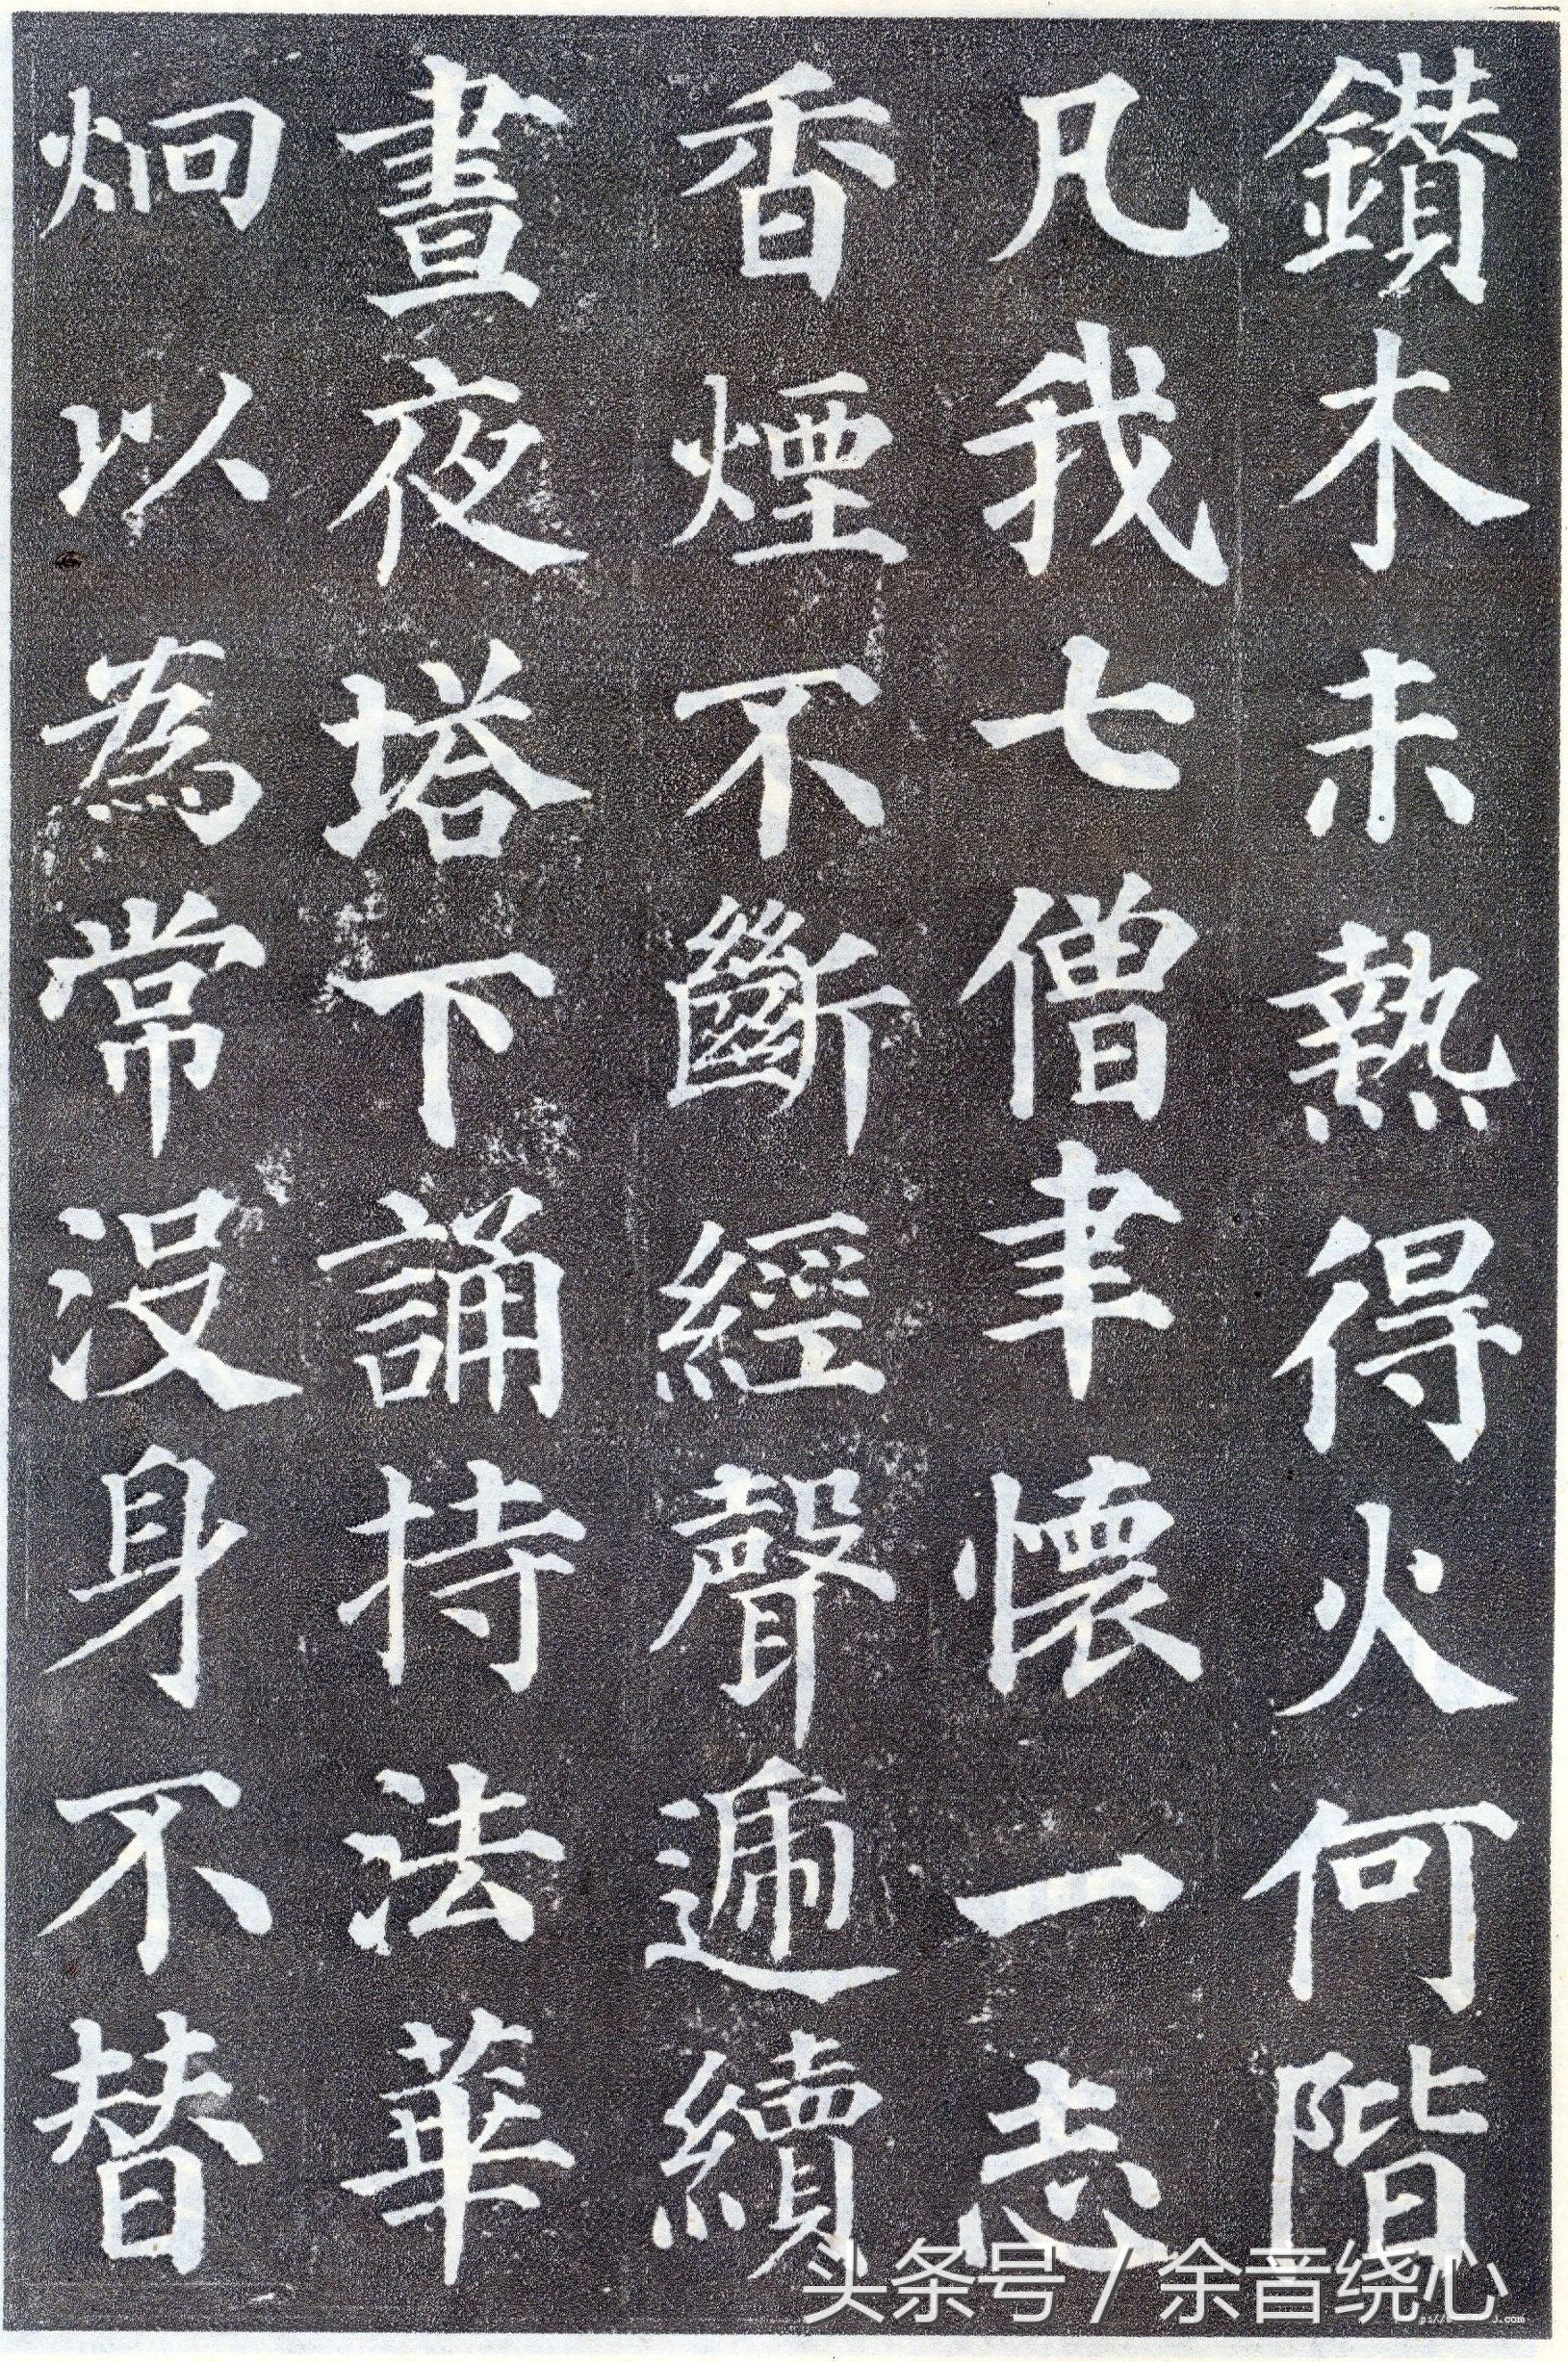 鑚木未熱得火何階
凡我七僧聿懷一志
香煙不斷經聲遞續
晝夜塔下誦持法華
炯以為常沒身不替
头条号 / 余音绕心